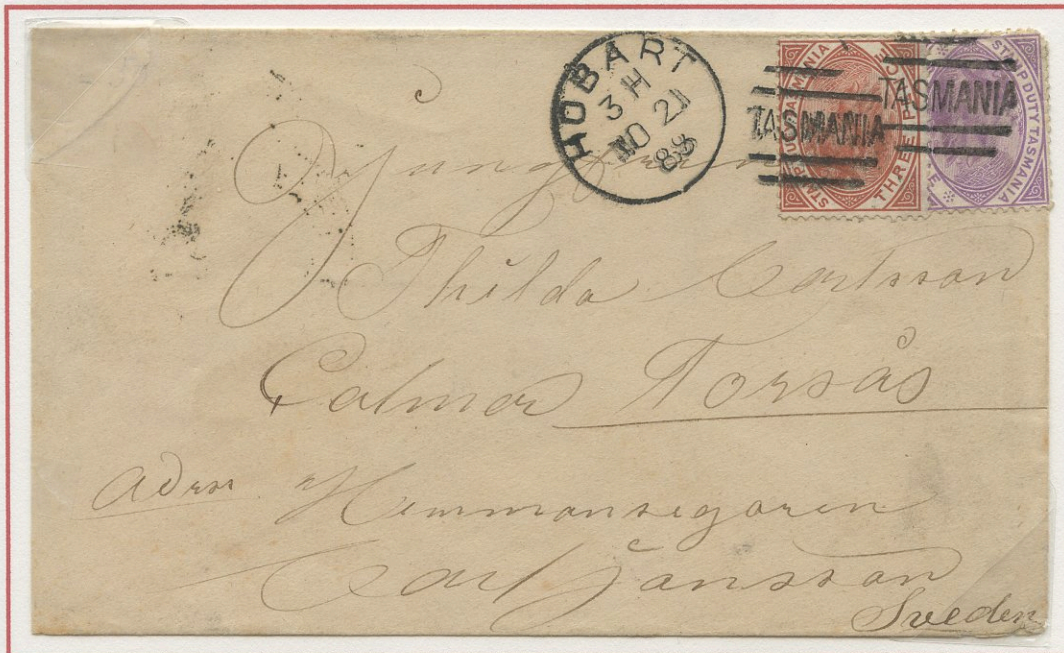 HOBART
3 H
NO 21
88
TASMANIA
TASMANIA
STAMP DUTY TASMANIA
THREE PENCE
STAMP DUTY TASMANIA
Jungfrun
Thilda Carlsson
Calmar Torsås
Adrss Hemmansegaren
Carl Jansson
Sweden